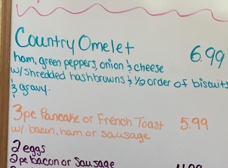 Country Omelet 6.99
ham, green peppers, onion & cheese
w/shredded hashbrowns & ½ order of biscuits
& gravy.
3pc Pancake or French Toast 5.99
w/ bacon, ham or sausage
2 eggs
2pc bacon or Sausage